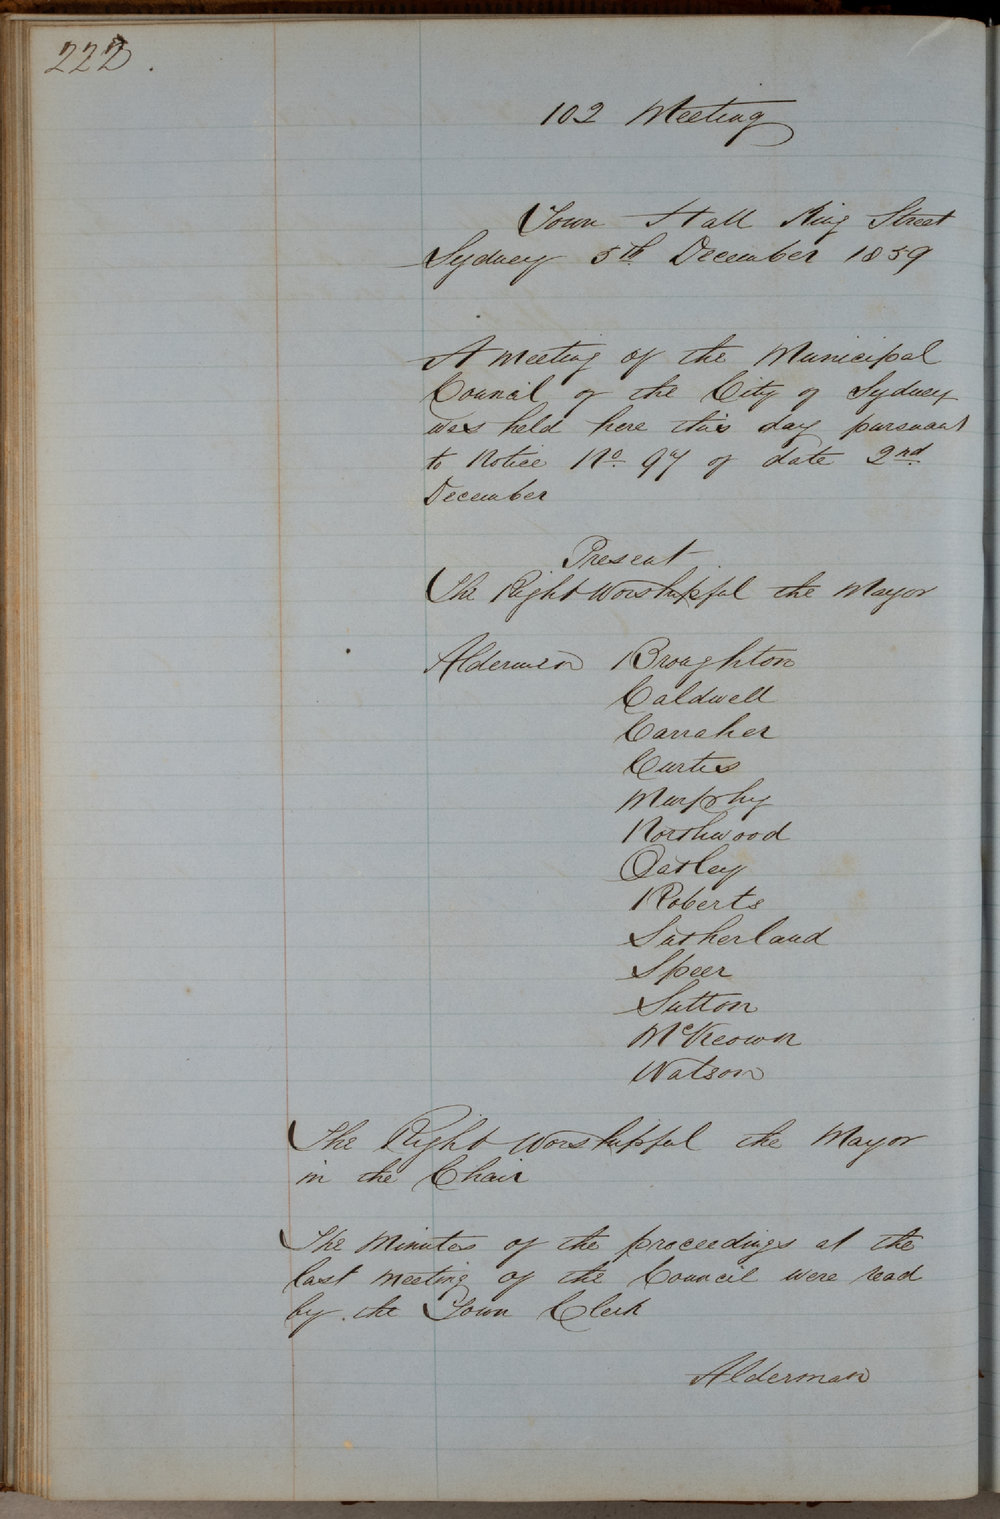 222.
102 Meeting
Town Hall King Street
Sydney 5th December 1859
A meeting of the Municipal
Council of the City of Sydney
was held here this day pursuant
to Notice No. 97 of date 2nd
December
Present
The Right Worshipful the Mayor
Aldermen Broughton
Caldwell
Carraher
Curtis
Murphy
Northwood
Oatley
Roberts
Sutherland
Speer
Sutton
McKeown
Watson
The Right Worshipful the Mayor
in the Chair
The Minutes of the proceedings at the
last meeting of the Council were read
by the Town Clerk
Alderman